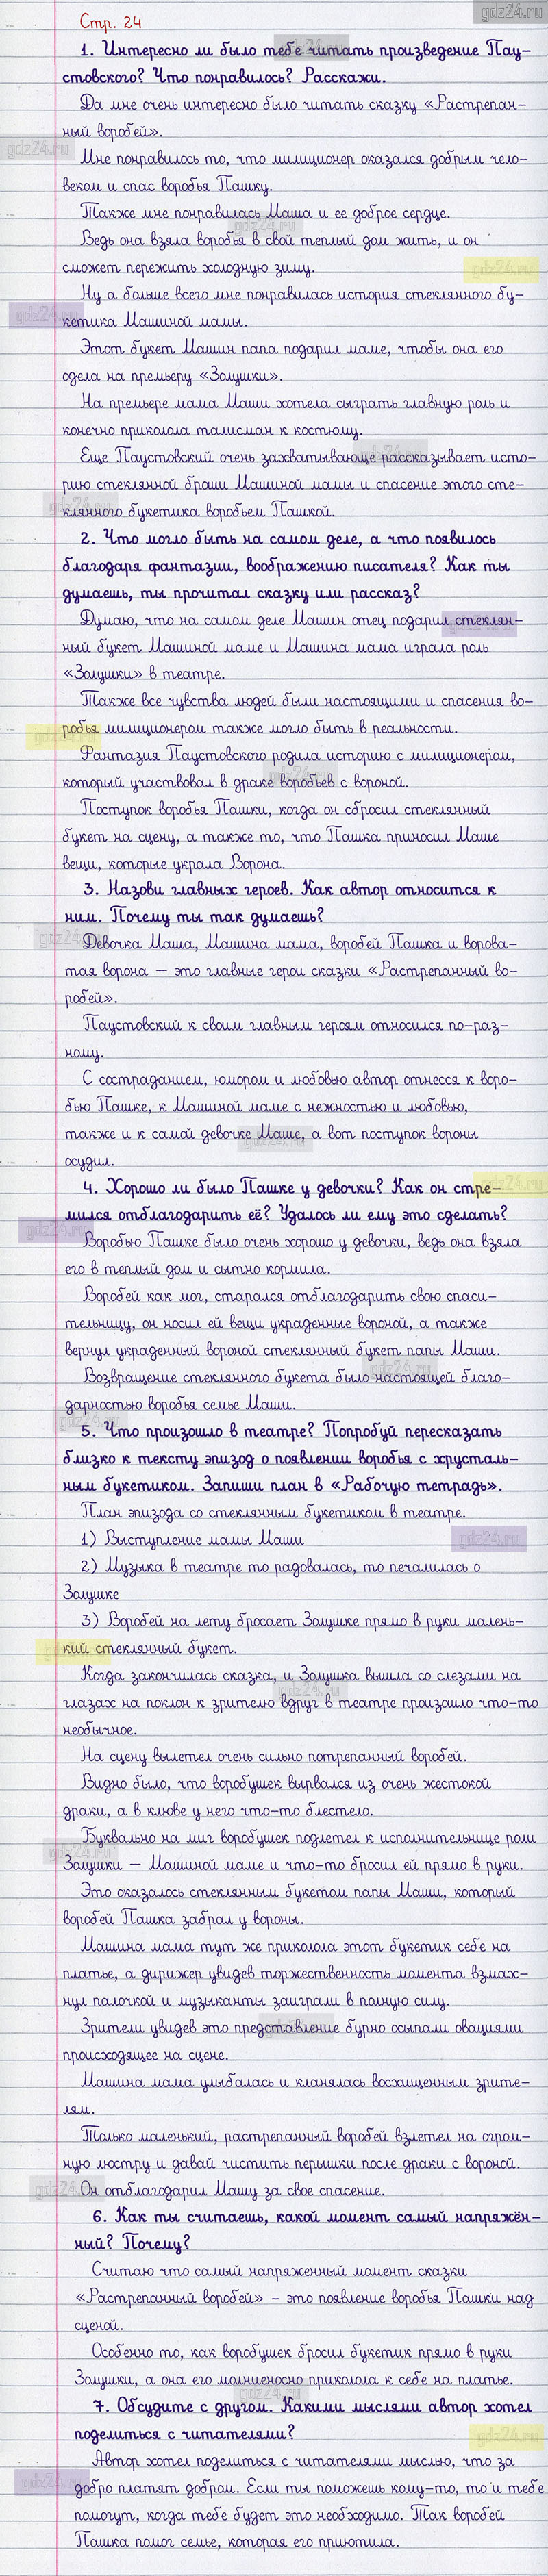 gdz24.ru
Стр. 24
1. Интересно ли было тебе читать произведение Пау-
стовского? Что понравилось? Расскажи.
Да мне очень интересно было читать сказку «Растрепан-
ный воробей».
Мне понравилось то, что милиционер оказался добрым чело-
веком и спас воробья Пашку.
Также мне понравилась Маша и ее доброе сердце.
Ведь она взяла воробья в свой теплый дом жить, и он
сможет пережить холодную зиму.
Ну а больше всего мне понравилась история стеклянного бу-
кетика Машиной мамы.
Этот букет Машин папа подарил маме, чтобы она его
одела на премьеру «Золушки».
На премьере мама Маши хотела сыграть главную роль и
конечно приколола талисман к костюму.
Еще Паустовский очень захватывающе рассказывает исто-
рию стеклянной броши Машиной мамы и спасение этого сте-
клянного букетика воробьем Пашкой.
2. Что могло быть на самом деле, а что появилось
благодаря фантазии, воображению писателя? Как ты
думаешь, ты прочитал сказку или рассказ?
Думаю, что на самом деле Машин отец подарил стеклян-
ный букет Машиной маме и Машина мама играла роль
«Золушки» в театре.
Также все чувства людей были настоящими и спасения во-
робья милиционером также могло быть в реальности.
Фантазия Паустовского родила историю с милиционером,
который участвовал в драке воробьев с вороной.
Поступок воробья Пашки, когда он сбросил стеклянный
букет на сцену, а также то, что Пашка приносил Маше
вещи, которые украла Ворона.
3. Назови главных героев. Как автор относится к
ним. Почему ты так думаешь?
Девочка Маша, Машина мама, воробей Пашка и ворова-
тая ворона – это главные герои сказки «Растрепанный во-
робей».
Паустовский к своим главным героям относился по-раз-
ному.
С состраданием, юмором и любовью автор отнесся к воро-
бью Пашке, к Машиной маме с нежностью и любовью,
также и к самой девочке Маше, а вот поступок вороны
осудил.
4. Хорошо ли было Пашке у девочки? Как он стре-
мился отблагодарить её? Удалось ли ему это сделать?
Воробью Пашке было очень хорошо у девочки, ведь она взяла
его в теплый дом и сытно кормила.
Воробей как мог, старался отблагодарить свою спаси-
тельницу, он носил ей вещи украденные вороной, а также
вернул украденный вороной стеклянный букет папы Маши.
Возвращение стеклянного букета было настоящей благо-
дарностью воробья семье Маши.
5. Что произошло в театре? Попробуй пересказать
близко к тексту эпизод о появлении воробья с хрусталь-
ным букетиком. Запиши план в «Рабочую тетрадь».
План эпизода со стеклянным букетиком в театре.
1) Выступление мамы Маши
2) Музыка в театре то радовалась, то печалилась о
Золушке
3) Воробей на лету бросает Золушке прямо в руки малень-
кий стеклянный букет.
Когда закончилась сказка, и Золушка вышла со слезами на
глазах на поклон к зрителю вдруг в театре произошло что-то
необычное.
На сцену вылетел очень сильно потрепанный воробей.
Видно было, что воробушек вырвался из очень жестокой
драки, а в клюве у него что-то блестело.
Буквально на миг воробушек подлетел к исполнительнице роли
Золушки – Машиной маме и что-то бросил ей прямо в руки.
Это оказалось стеклянным букетом папы Маши, который
воробей Пашка забрал у вороны.
Машина мама тут же приколола этот букетик себе на
платье, а дирижер увидев торжественность момента взмах-
нул палочкой и музыканты заиграли в полную силу.
Зрители увидев это представление бурно осыпали овациями
происходящее на сцене.
Машина мама улыбалась и кланялась восхищенным зрите-
лям.
Только маленький, растрепанный воробей взлетел на огром-
ную люстру и давай чистить перышки после драки с вороной.
Он отблагодарил Машу за свое спасение.
6. Как ты считаешь, какой момент самый напряжён-
ный? Почему?
Считаю что самый напряженный момент сказки
«Растрепанный воробей» – это появление воробья Пашки над
сценой.
Особенно то, как воробушек бросил букетик прямо в руки
Золушки, а она его молниеносно приколола к себе на платье.
7. Обсудите с другом. Какими мыслями автор хотел
поделиться с читателями?
Автор хотел поделиться с читателями мыслью, что за
добро платят добром. Если ты поможешь кому-то, то и тебе
помогут, когда тебе будет это необходимо. Так воробей
Пашка помог семье, которая его приютила.